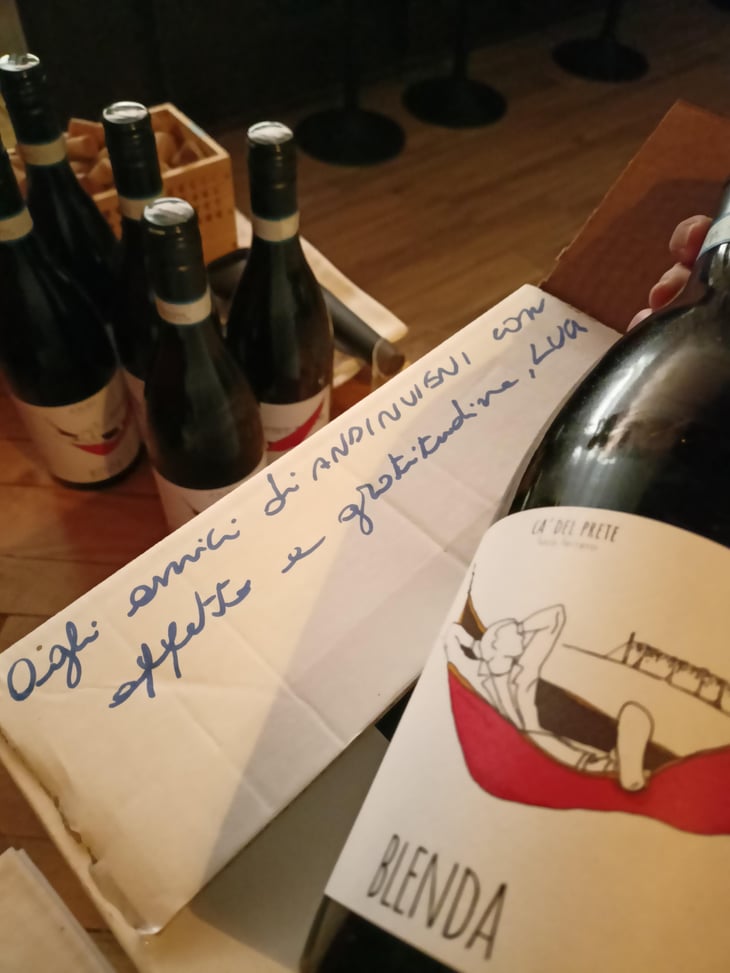 Aigli amici di ANDINVIENI con
affetto e gratitudine, LUA
CA' DEL PRETE
BLENDA